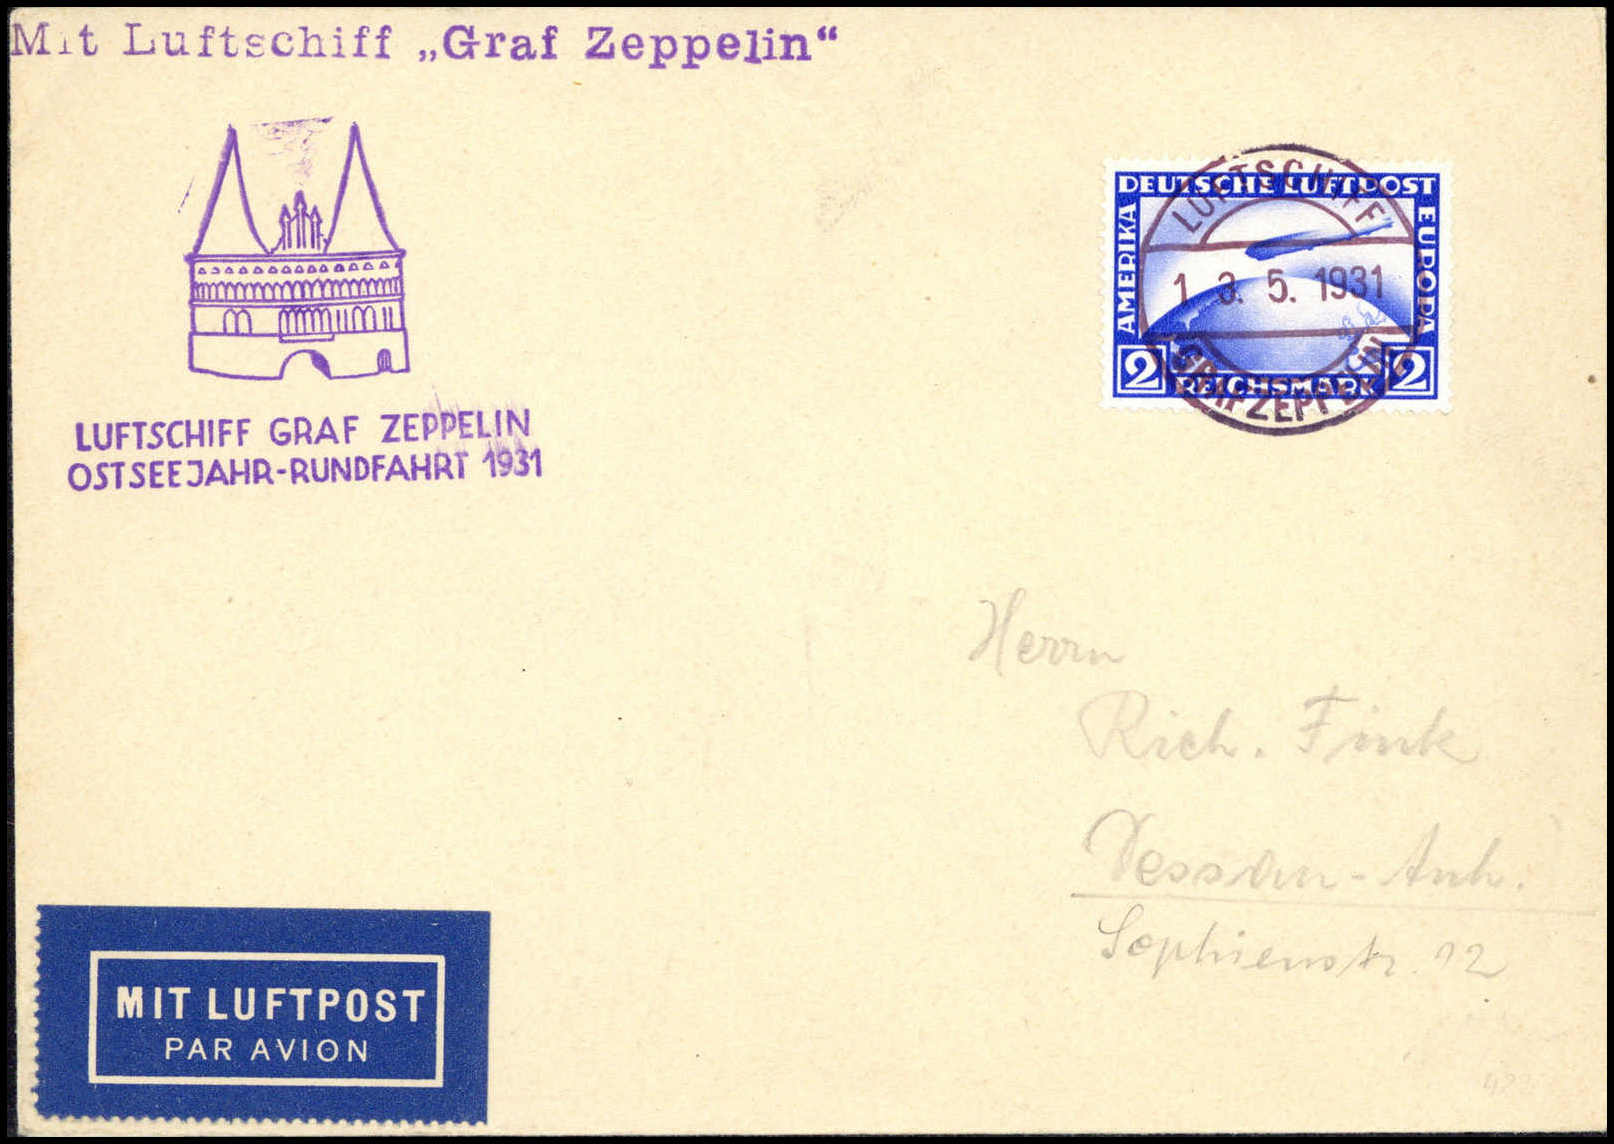 Mit Luftschiff „Graf Zeppelin“
LUFTSCHIFF GRAF ZEPPELIN
OSTSEEJAHR-RUNDFAHRT 1931
DEUTSCHE LUFTPOST
AMERIKA
EUROPA
2 REICHSMARK 2
LUFTSCHIFF
13. 5. 1931
GRAF ZEPPELIN
Herrn
Rich. Fink
Dessau-Anh.
Sophienstr. 12
MIT LUFTPOST
PAR AVION